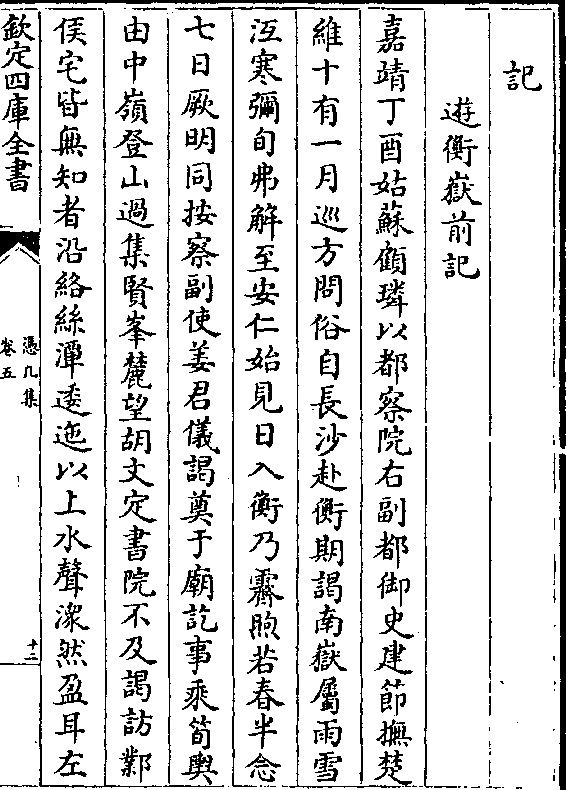 記
遊衡嶽前記
嘉靖丁酉姑蘇顧璘以都察院右副都御史建節撫楚
維十有一月巡方問俗自長沙赴衡期謁南嶽屬雨雪
沍寒彌旬弗解至安仁始見日入衡乃霽煦若春半念
七日厥明同按察副使姜君儀謁奠于廟訖事乘筍輿
由中嶺登山過集賢峯麓望胡文定書院不及謁訪鄴
侯宅皆無知者沿絡絲潭逶迤以上水聲潀然盈耳左
欽定四庫全書
憑几集
卷五
十二